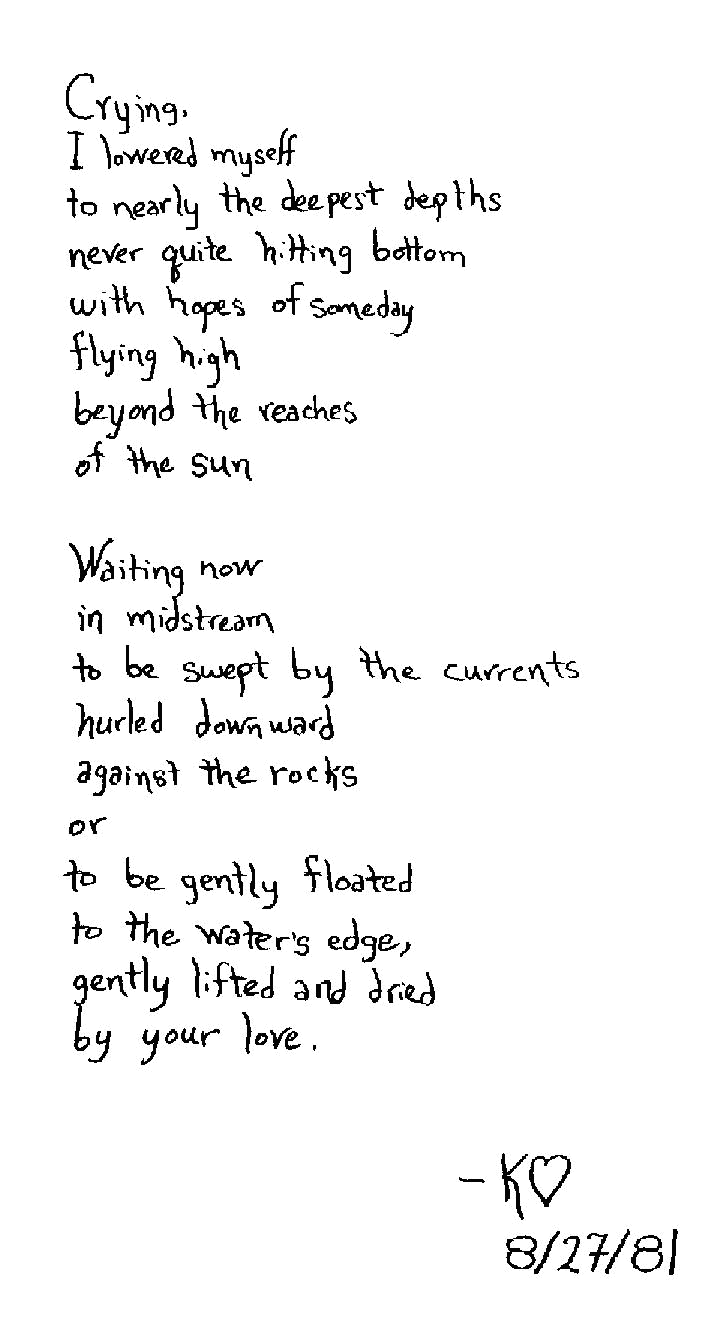 Crying,
I lowered myself
to nearly the deepest depths
never quite hitting bottom
with hopes of someday
flying high
beyond the reaches
of the sun

Waiting now
in midstream
to be swept by the currents
hurled downward
against the rocks
or
to be gently floated
to the water's edge,
gently lifted and dried
by your love.

- K♡
8/27/81